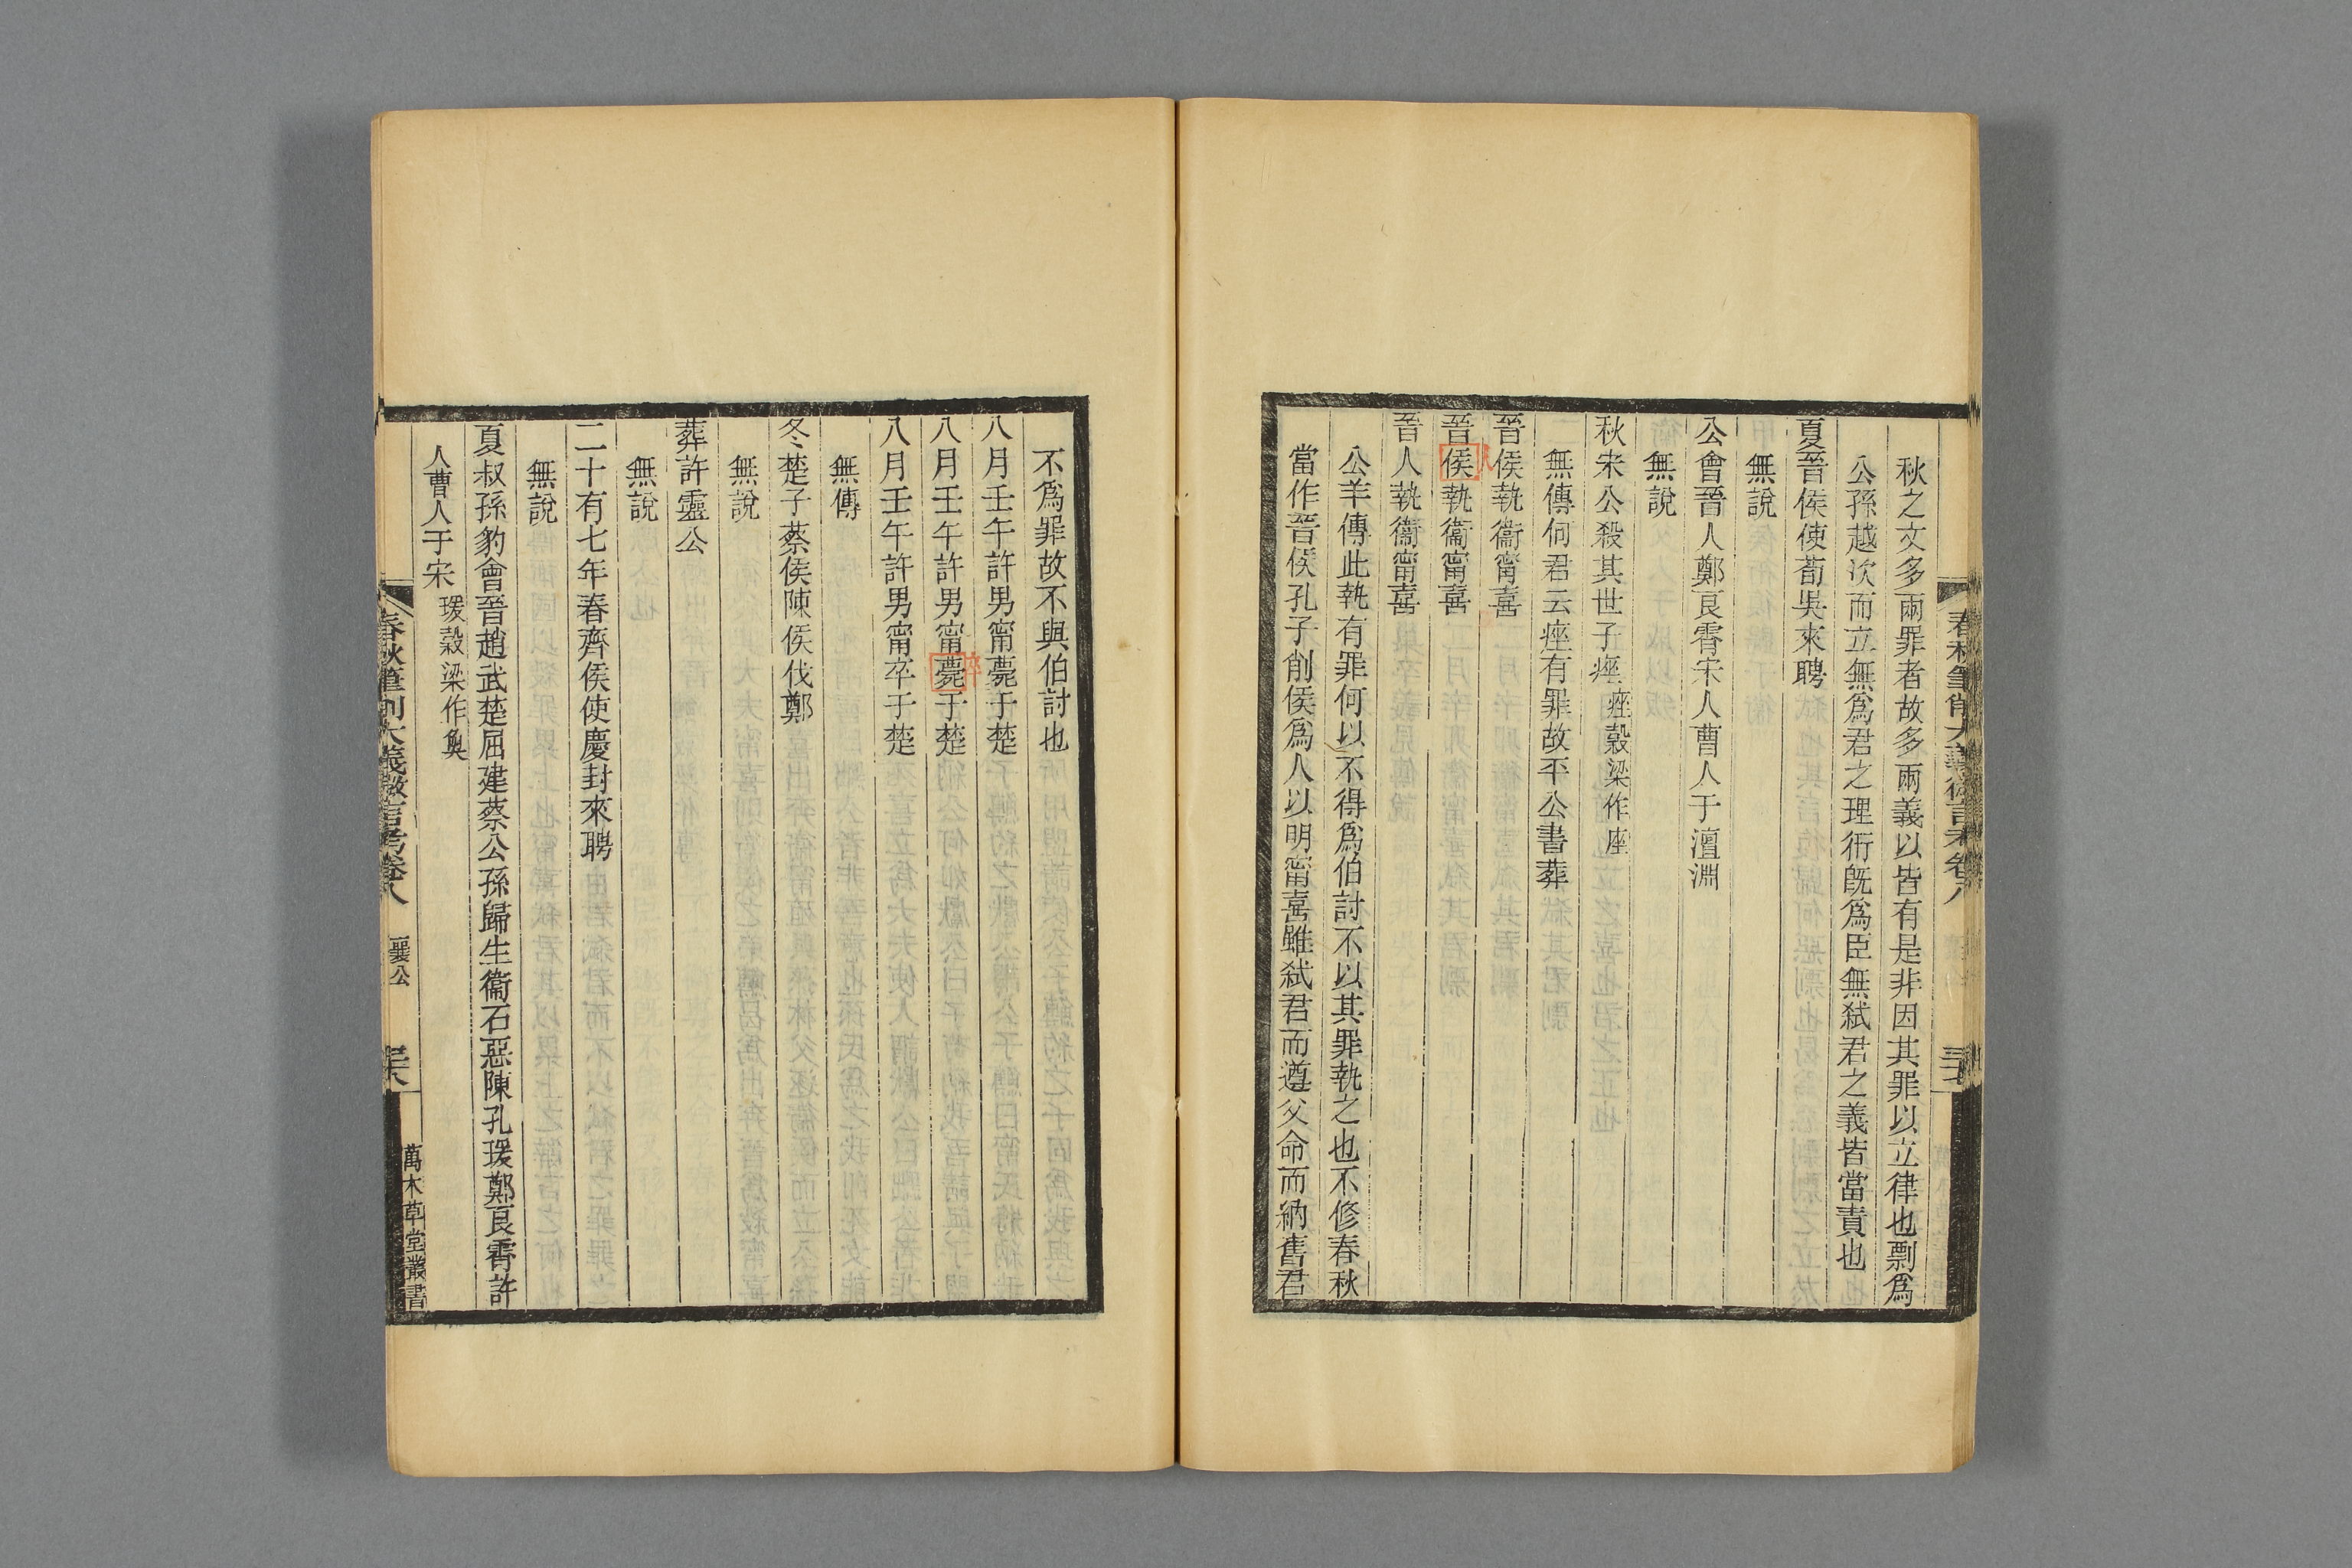 春秋筆削大義微言考卷八
秋之文多兩罪者故多兩義以皆有是非因其罪以立律也剽爲
公孫越次而立無爲君之理衎旣爲臣無弑君之義皆當責也
夏晉侯使荀吳來聘
無說
公會晉人鄭良霄宋人曹人于澶淵
無說
秋宋公殺其世子痤 痤穀梁作座
無傳何君云痤有罪故平公書葬
晉侯執衞甯喜
人
晉侯執衞甯喜
晉人執衞甯喜
公羊傳此執有罪何以不得爲伯討不以其罪執之也不修春秋
當作晉侯孔子削侯爲人以明甯喜雖弑君而遵父命而納舊君
不爲罪故不與伯討也
八月壬午許男甯薨于楚
卒
八月壬午許男甯薨于楚
八月壬午許男甯卒于楚
無傳
冬楚子蔡侯陳侯伐鄭
無說
葬許靈公
無說
二十有七年春齊侯使慶封來聘
無說
夏叔孫豹會晉趙武楚屈建蔡公孫歸生衞石惡陳孔瑗鄭良霄許
人曹人于宋 瑗穀梁作奐
春秋筆削大義微言考卷八 襄公 三十八 萬木草堂叢書